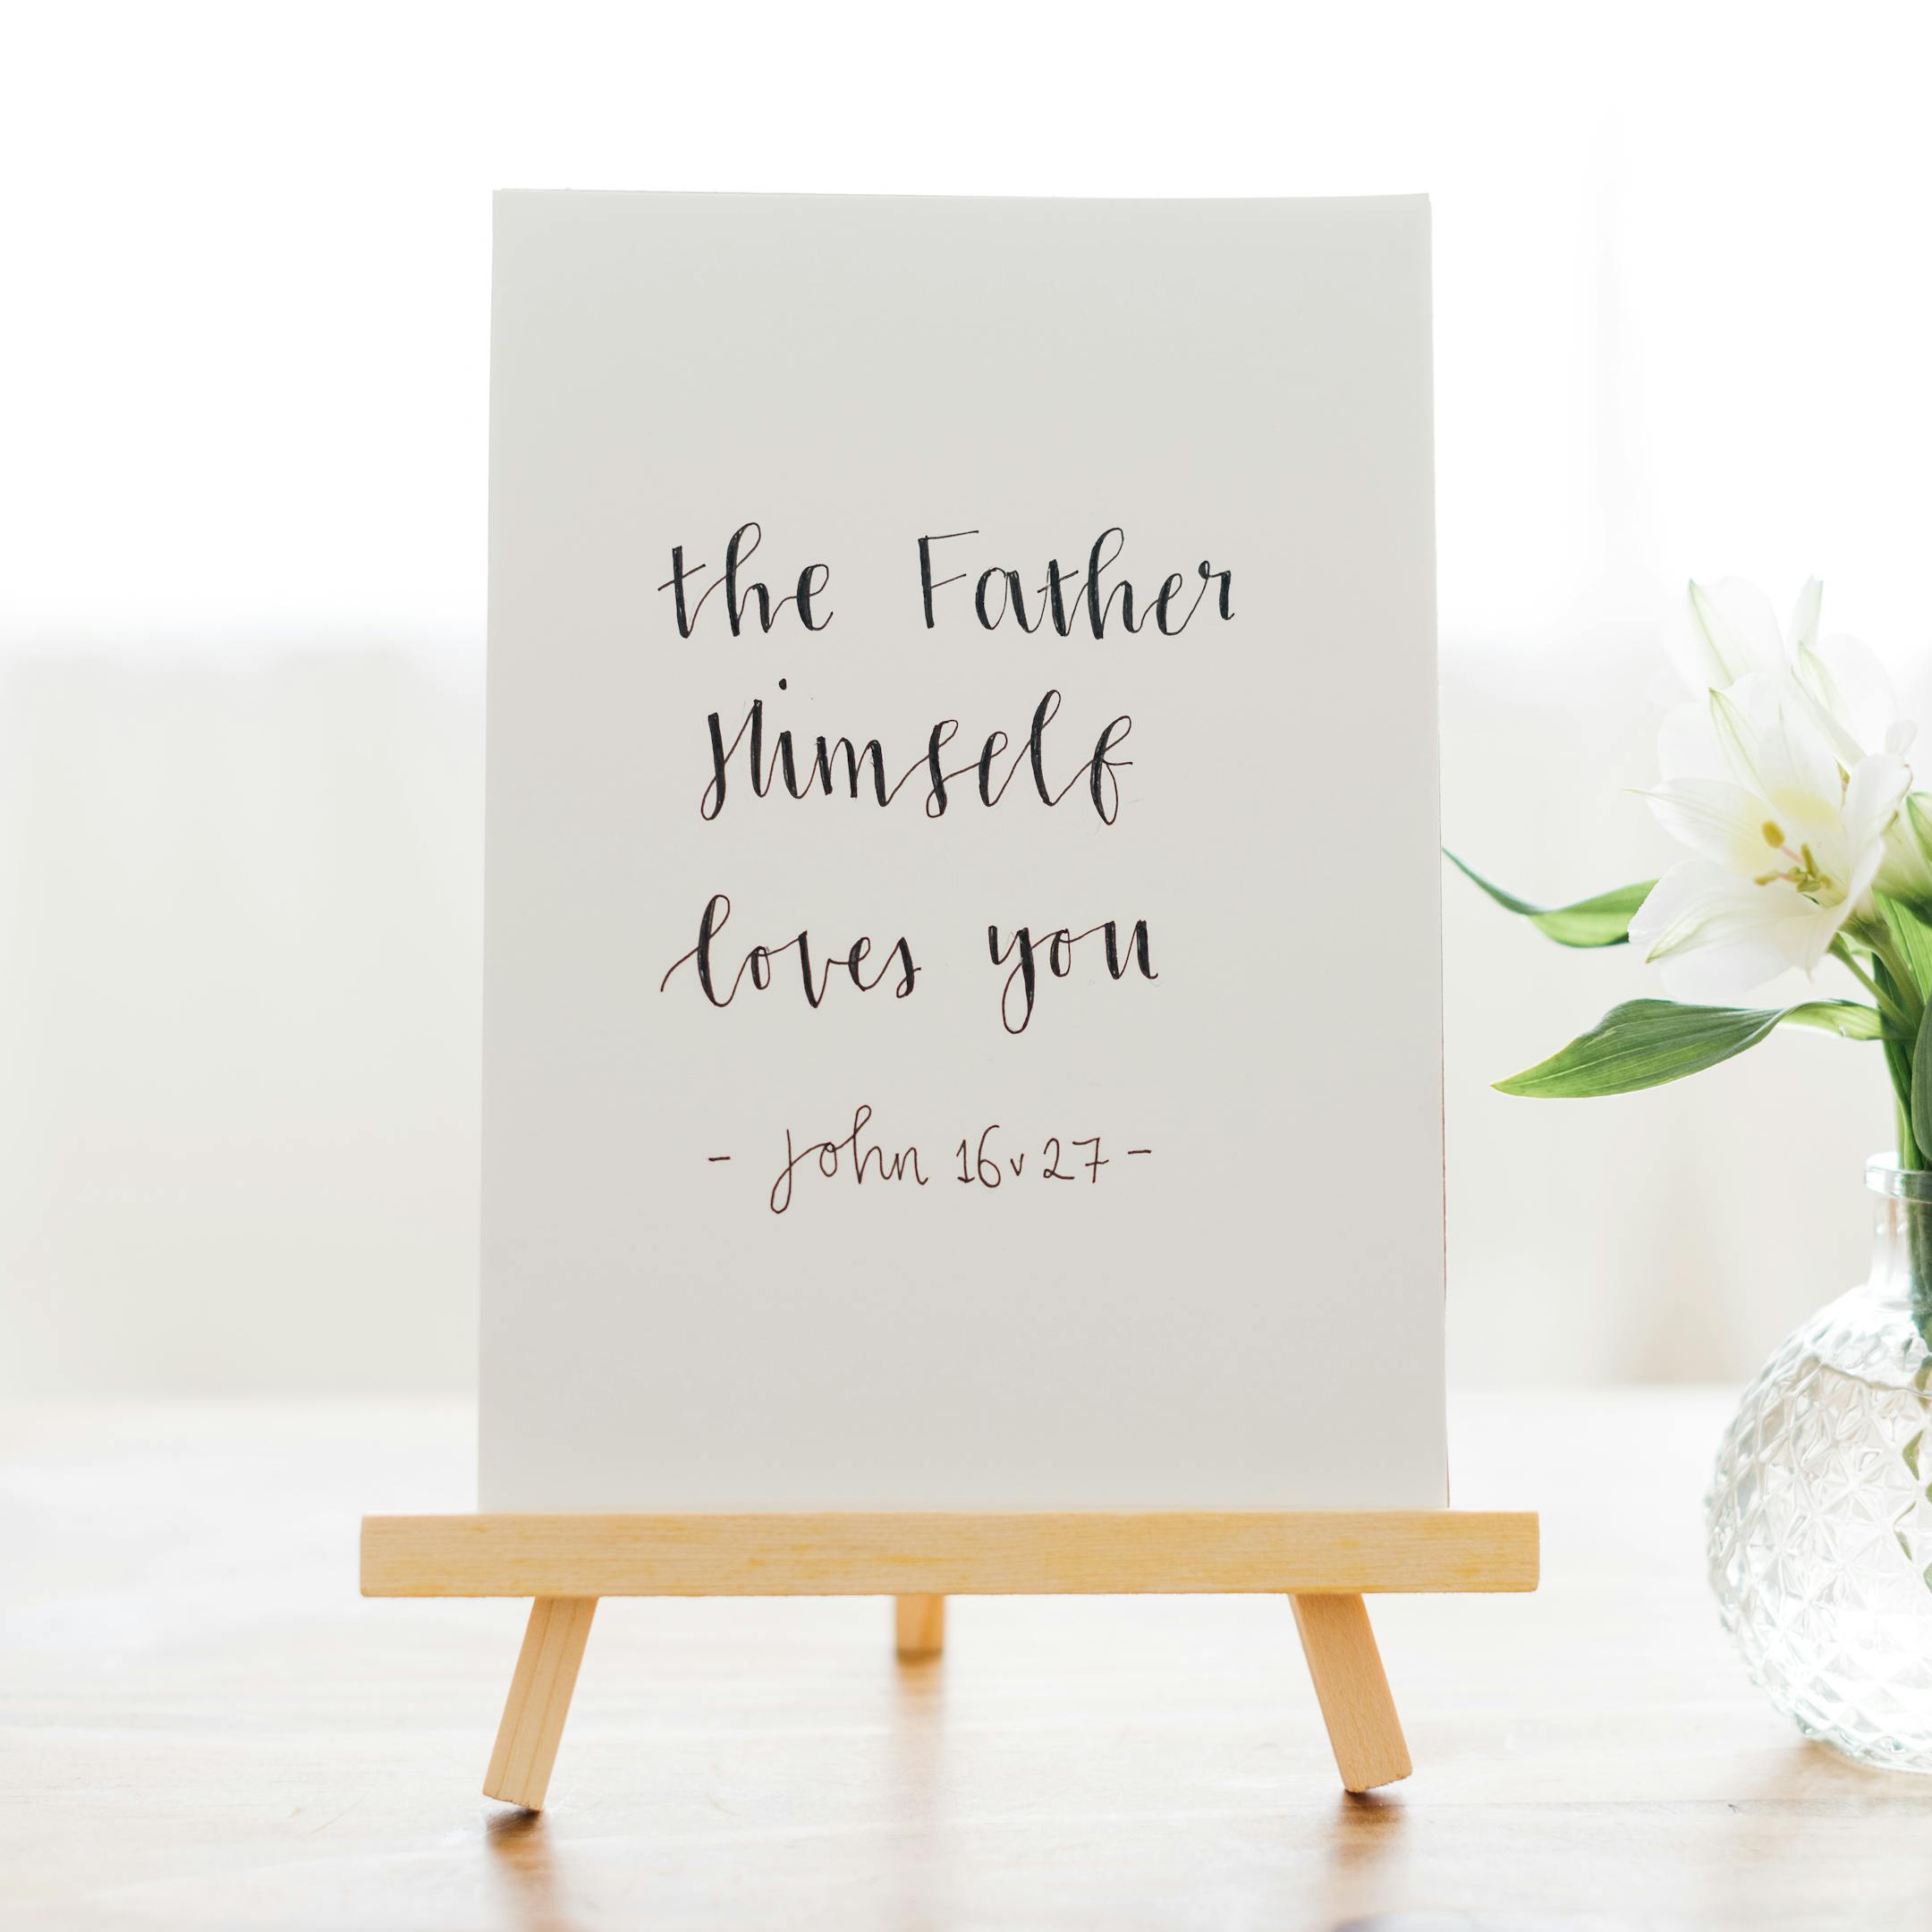 the Father
Himself
loves you
- John 16v27 -